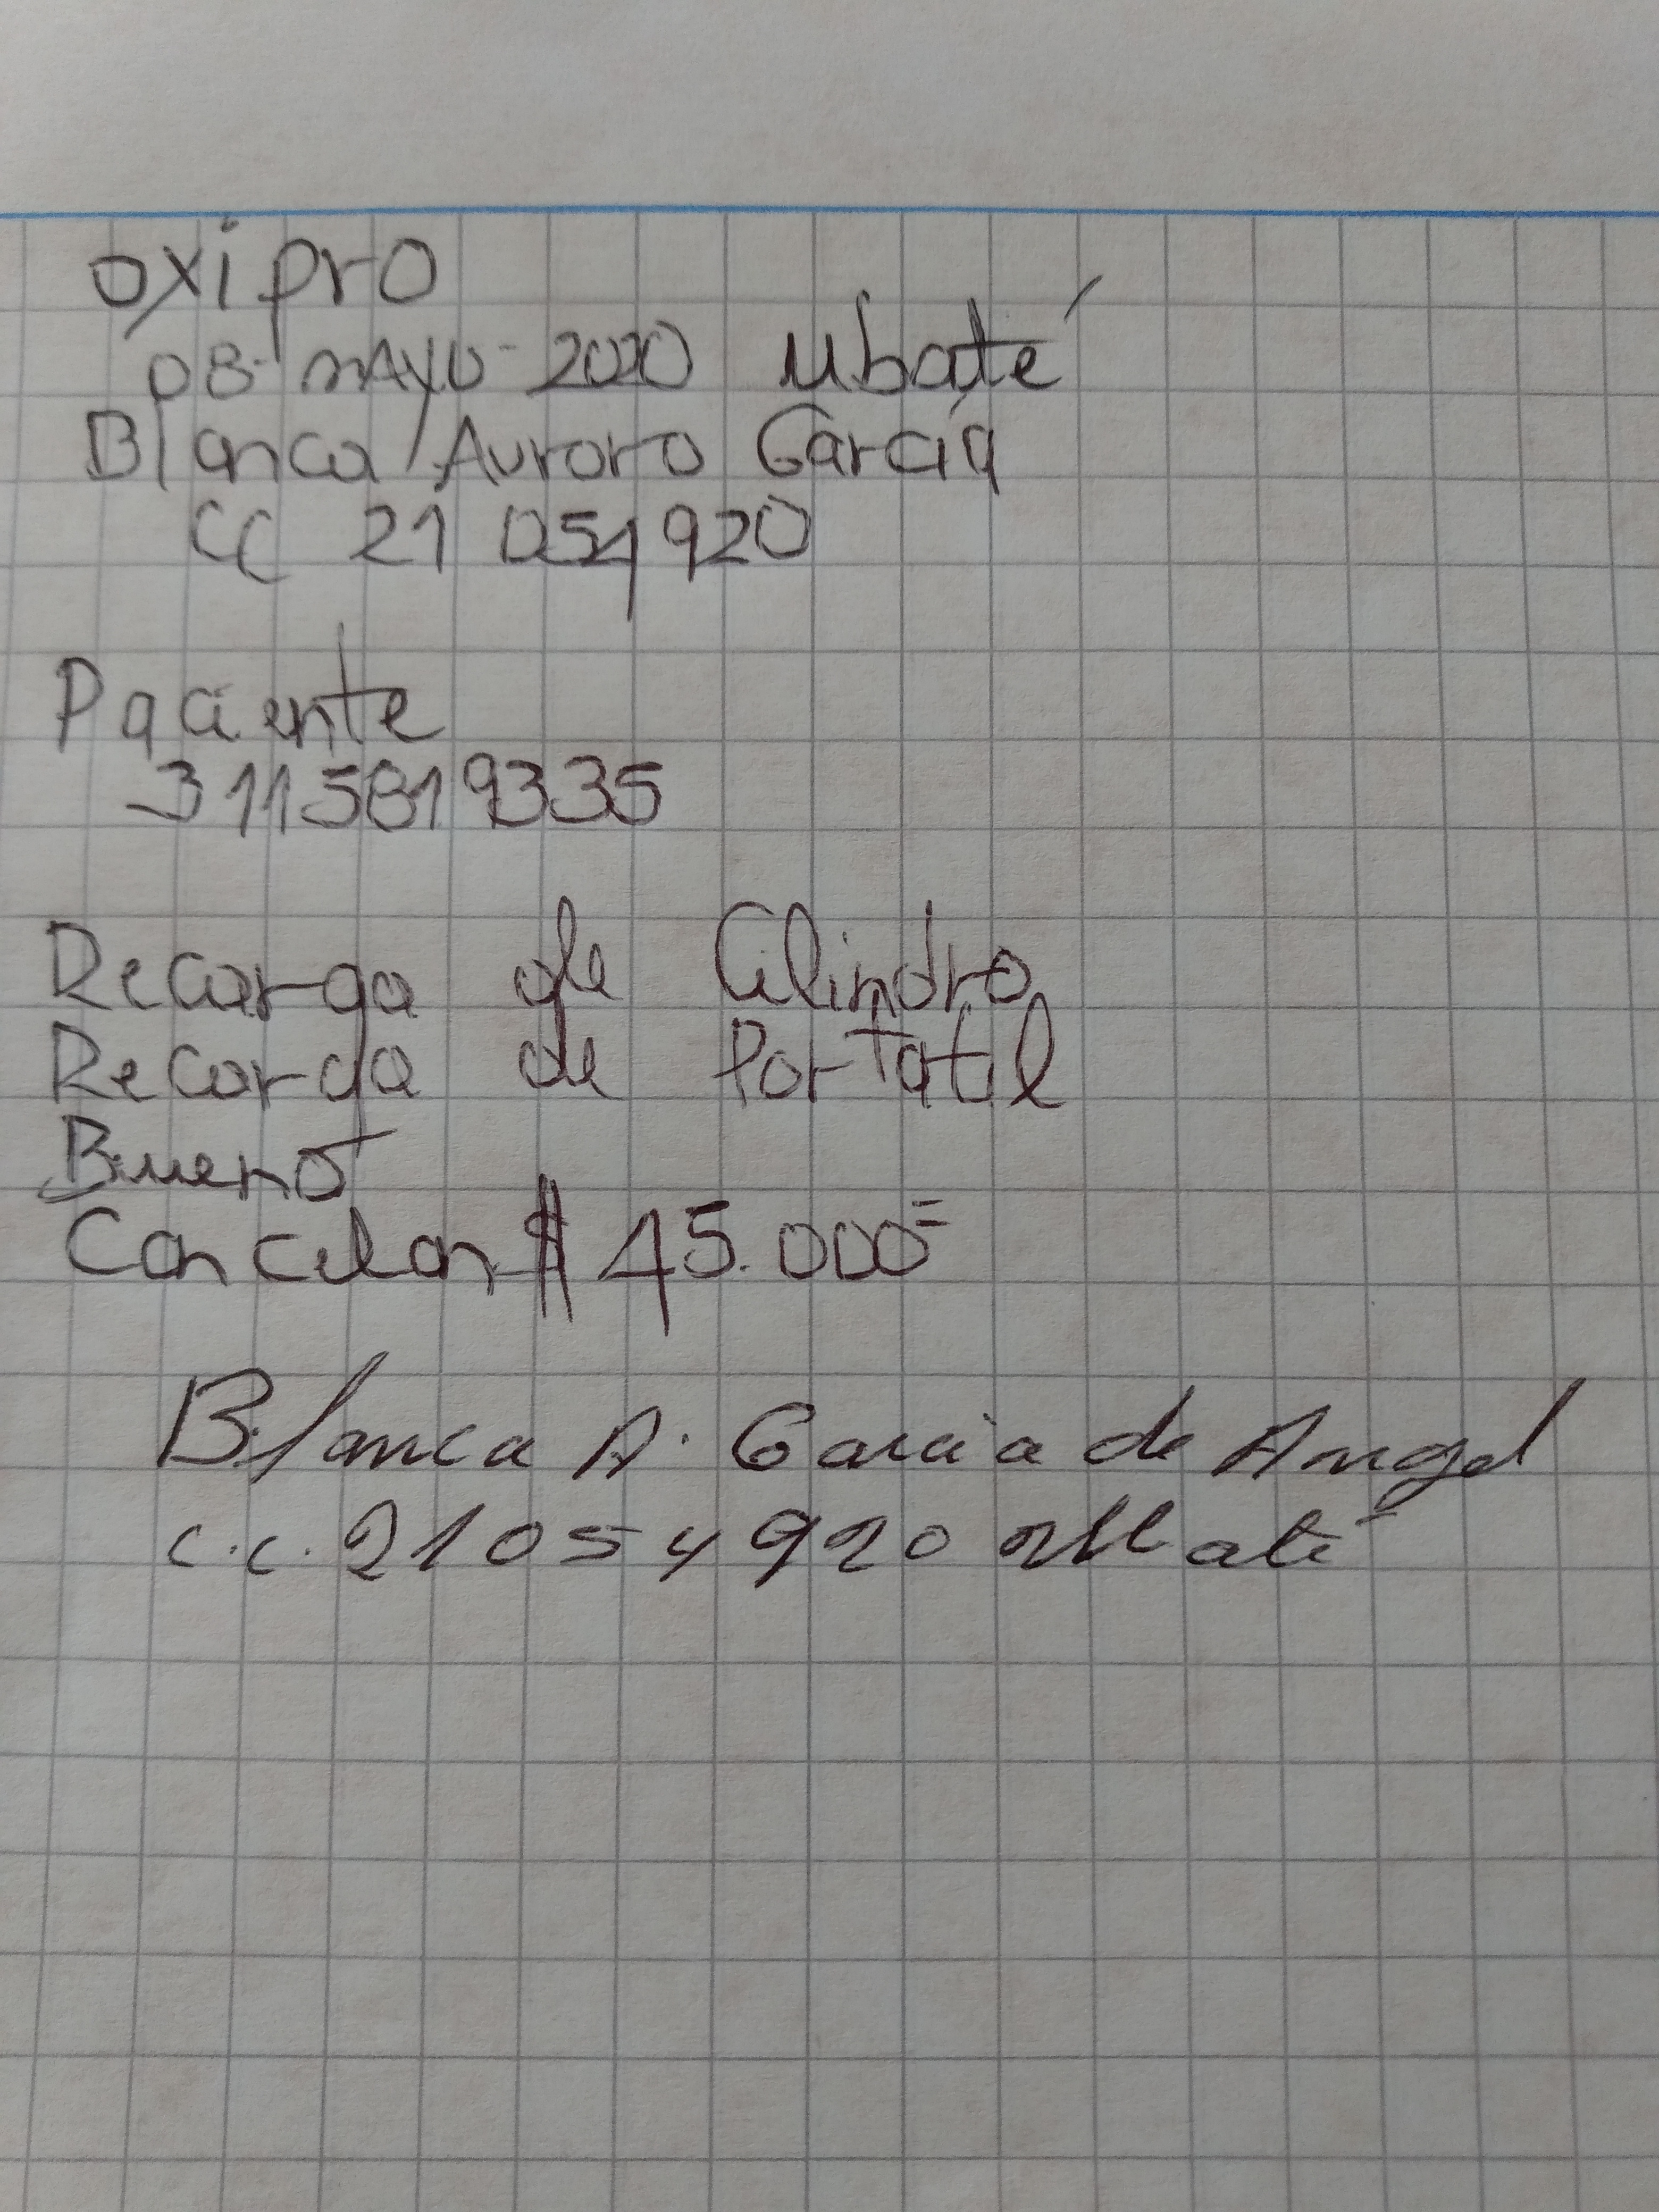 oxipro
08-MAYO-2020 Ubaté
Blanca Aurora García
CC 21 054920
Paciente
3115819335
Recarga de Cilindro
Recarga de Portatil
Bueno
Cancelan $ 45.000=
Blanca A. Garcia de Angel
c.c. 21054920 Ubaté